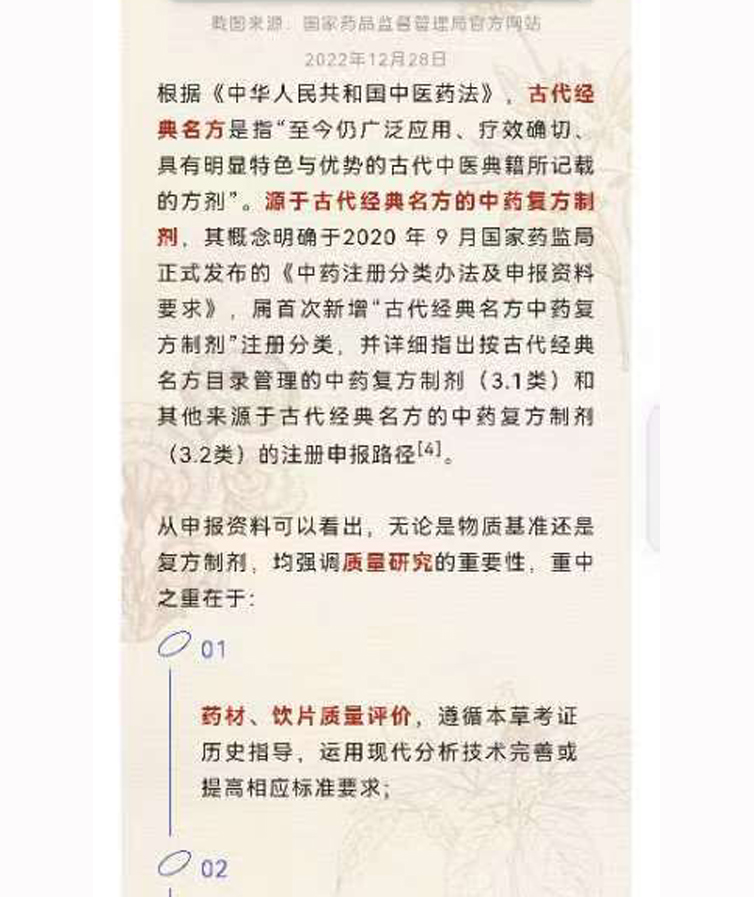 截图来源：国家药品监督管理局官方网站
2022年12月28日
根据《中华人民共和国中医药法》，古代经
典名方是指“至今仍广泛应用、疗效确切、
具有明显特色与优势的古代中医典籍所记载
的方剂”。源于古代经典名方的中药复方制
剂，其概念明确于2020 年 9 月国家药监局
正式发布的《中药注册分类办法及申报资料
要求》，属首次新增“古代经典名方中药复
方制剂”注册分类，并详细指出按古代经典
名方目录管理的中药复方制剂（3.1类）和
其他来源于古代经典名方的中药复方制剂
（3.2类）的注册申报路径[4]。
从申报资料可以看出，无论是物质基准还是
复方制剂，均强调质量研究的重要性，重中
之重在于：
01
药材、饮片质量评价，遵循本草考证
历史指导，运用现代分析技术完善或
提高相应标准要求；
02